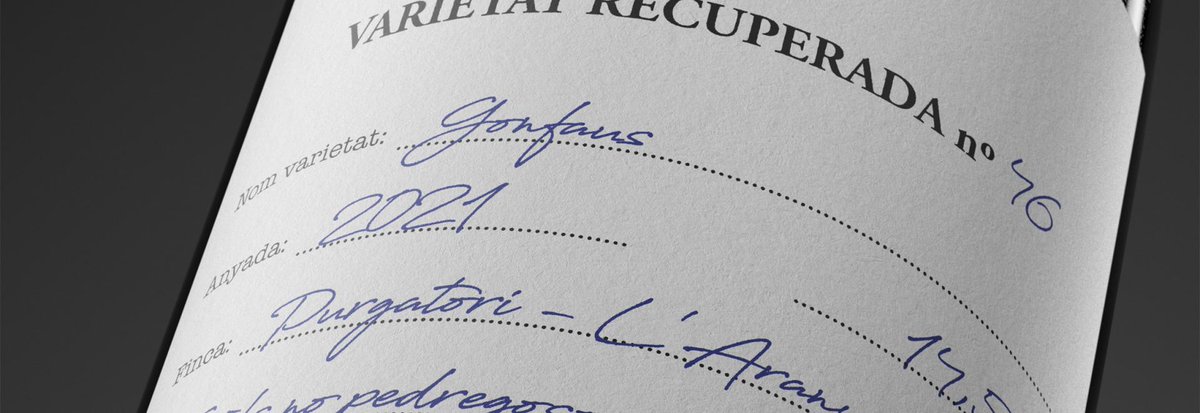 VARIETAT RECUPERADA nº 46
Nom varietat: Gonfaus
Anyada: 2021
Finca: Purgatori - L'Aran
14,5
pedregos